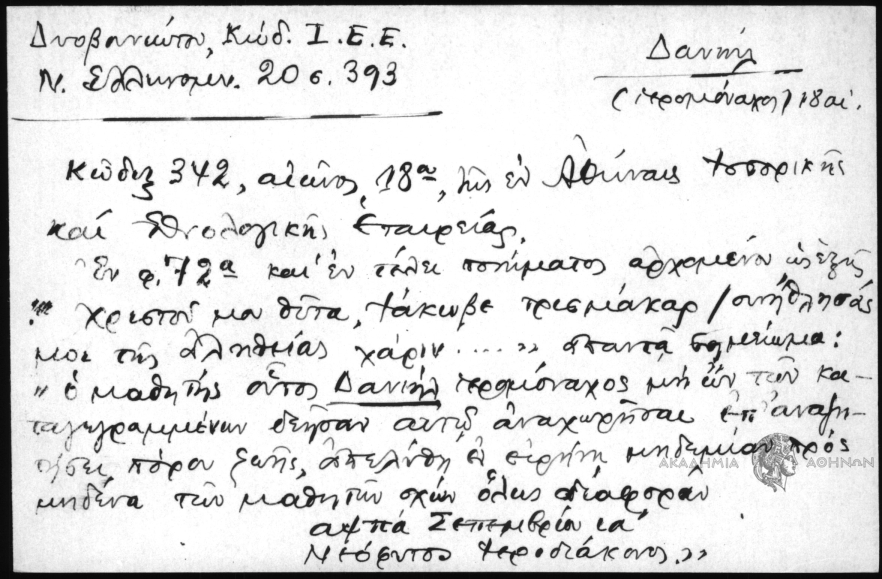 Δυοβουνιώτου, Κώδ. Ι.Ε.Ε.
Ν. Ἑλληνομν. 20 σ. 393
Δανιήλ
(ἱερομόναχος) 18 αἰ.
Κῶδιξ 342, αἰῶνος 18ου, τῆς ἐν Ἀθήναις Ἱστορικῆς
καὶ Ἐθνολογικῆς Ἑταιρείας.
Ἐν φ. 72α καὶ ἐν τέλει ποιήματος ἀρχομένου ὡς ἑξῆς
"Χριστοῦ μου θῦτα, Ἰάκωβε τρισμάκαρ / συνήθλησάς
μοι τῆς ἀληθείας χάριν....." ἀπαντᾷ σημείωμα:
"ὁ μαθητὴς οὗτος Δανιὴλ ἱερομόναχος μὴ ὢν τῶν κα-
ταγεγραμμένων ἐδέησαν αὐτῷ ἀναχωρῆσαι ἐπ' ἀναζη-
τήσει πόρου ζωῆς, ἀπελύθη ἐν εἰρήνῃ μηδεμίαν πρὸς
μηδένα τῶν μαθητῶν σχὼν ὅλως διαφορὰν
αψπά Σεπτεμβρίου ια'
Νεόφυτος Ἱεροδιάκονος."
ΑΚΑΔΗΜΙΑ ΑΘΗΝΩΝ